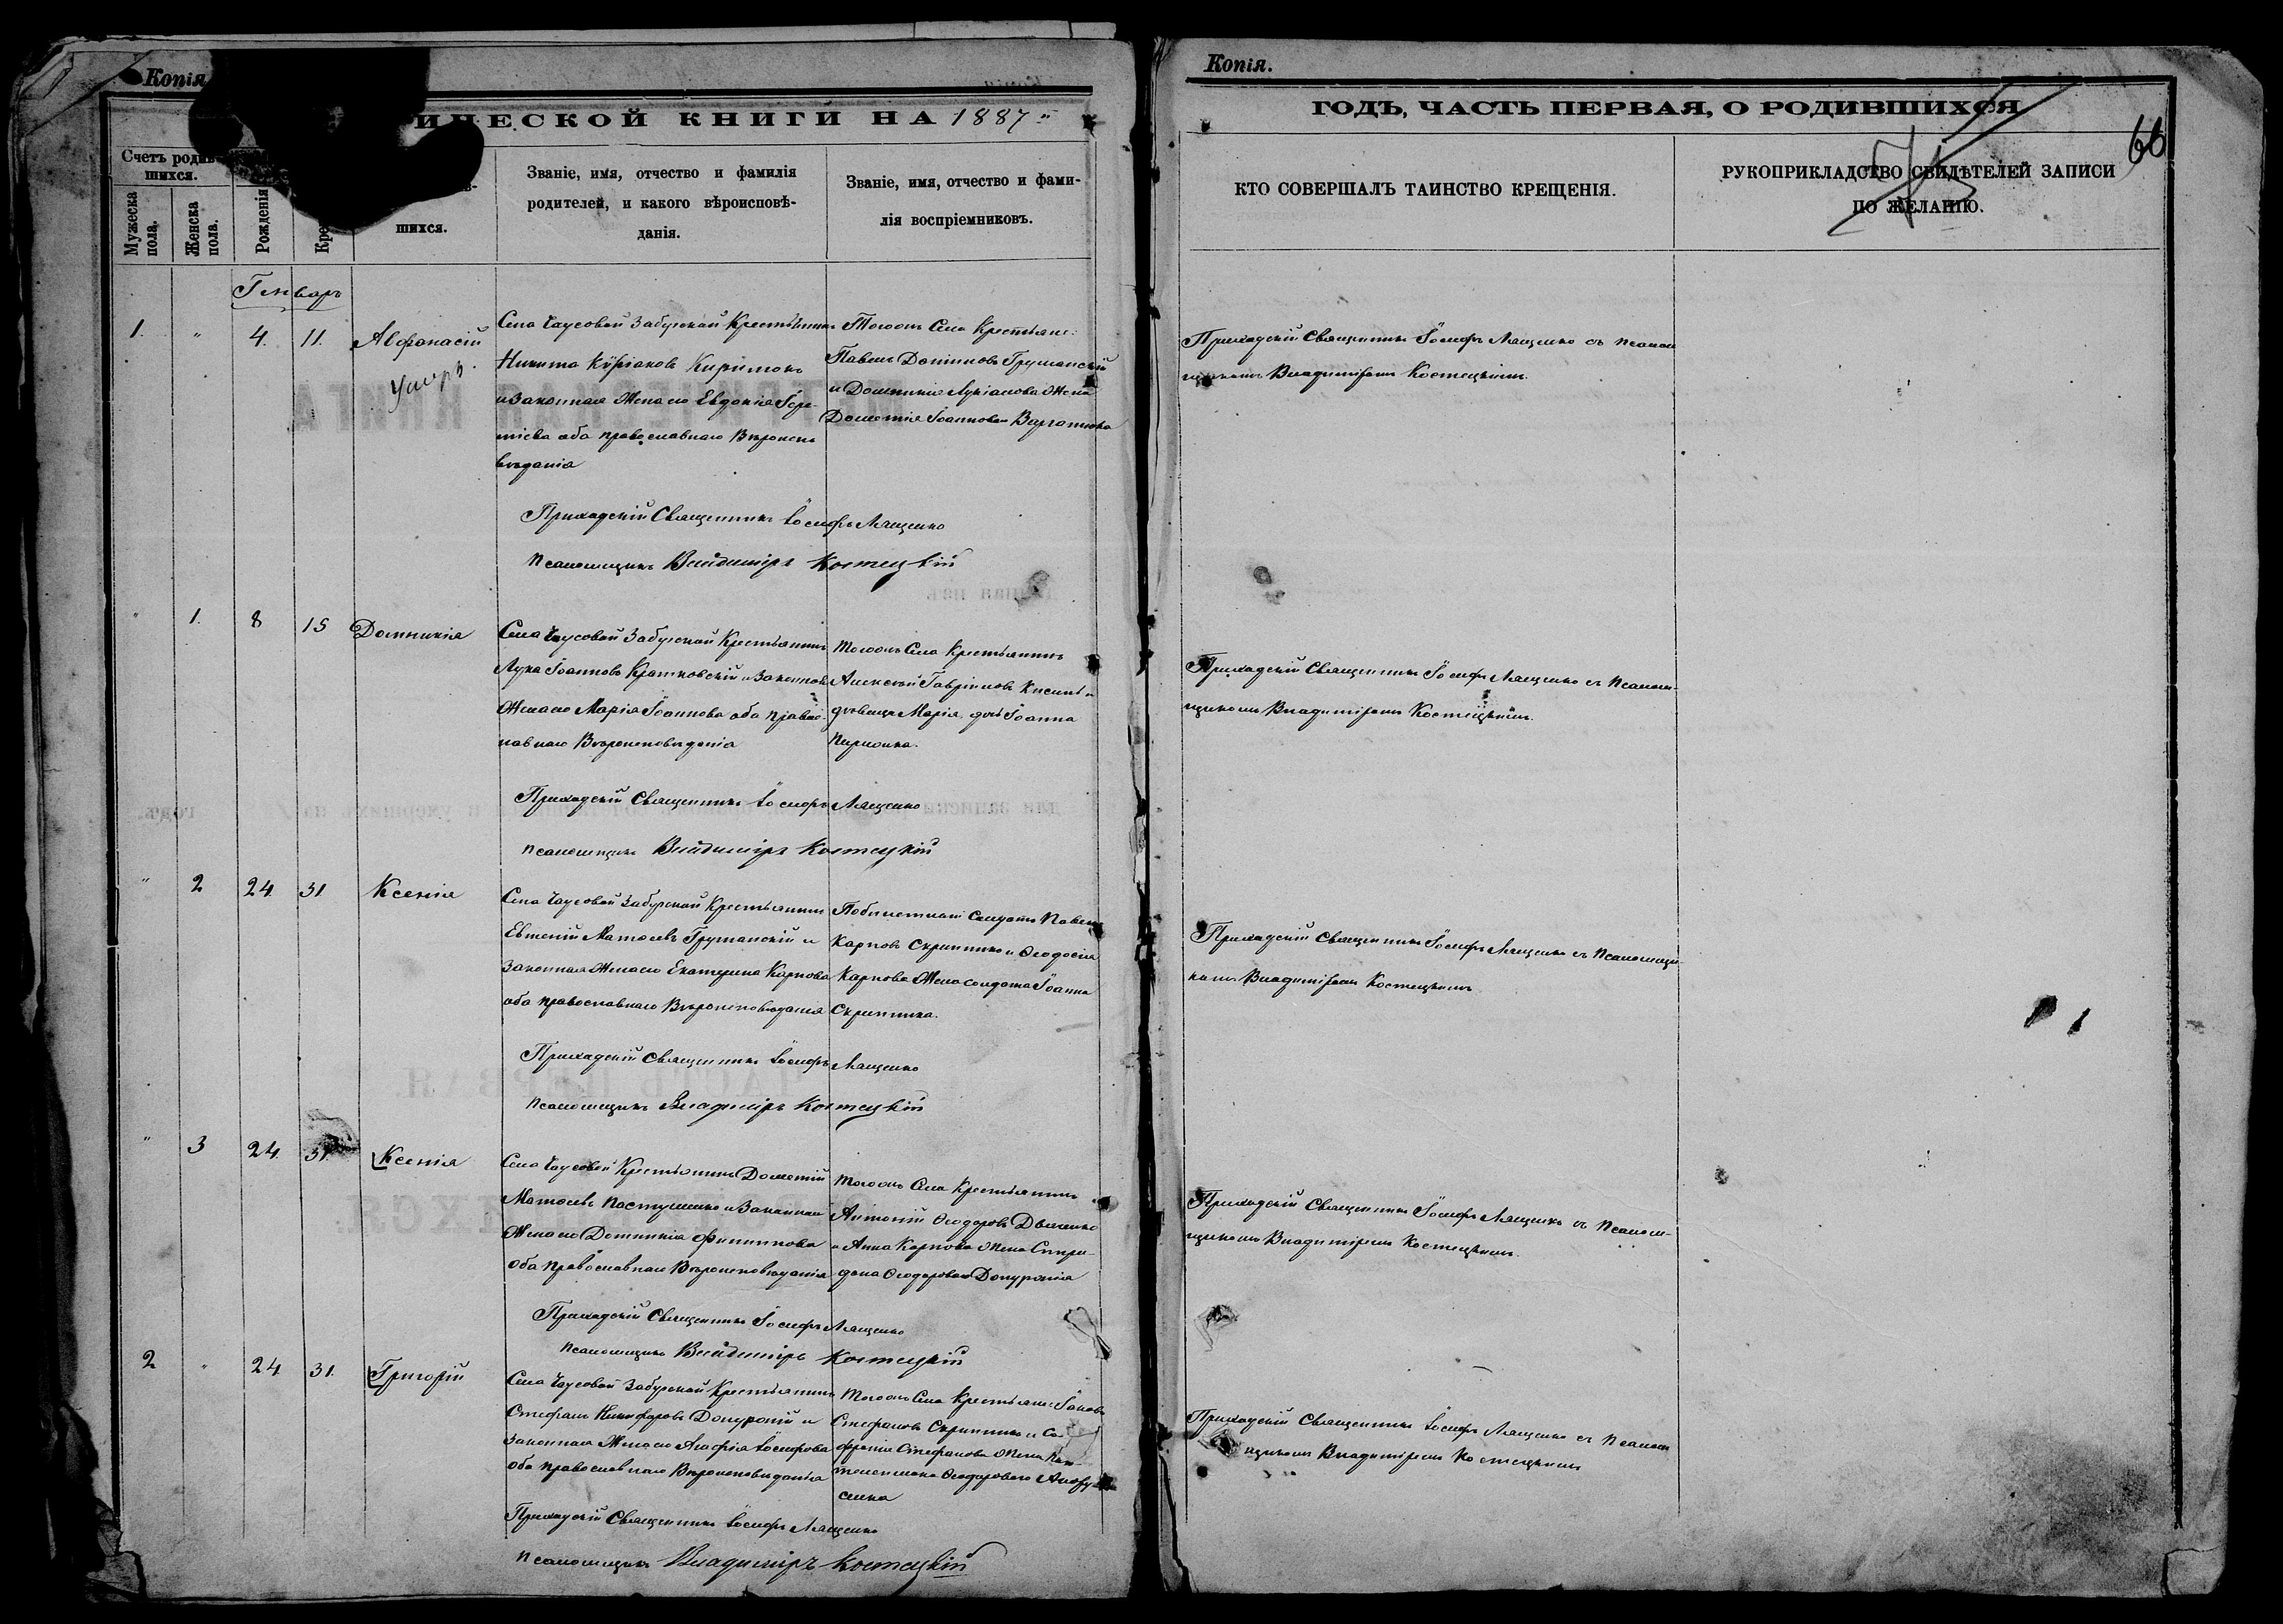 Копія.
ИЧЕСКОЙ КНИГИ НА 1887
Счетъ родив-
шихся.
Мужеска пола.
Женска пола.
Рожденія
Кре
шихся.
Званіе, имя, отчество и фамилія
родителей, и какого вѣроисповѣ-
данія.
Званіе, имя, отчество и фами-
лія воспріемниковъ.
Генварь
1. " 4. 11. Афонасій
Умеръ.
Села Чаусовой Забугской Крестьянинъ
Никита
и Законная Жена его Евдокія
оба православнаго Вѣроиспо-
вѣданія
Тогожъ Села Крестьяне:
Павелъ Грушанскій
и Домникія Лукіанова Жена
Дометія Іоаннова
Приходскій Священникъ Іосифъ Лященко
Псаломщикъ Владиміръ Костецкій
" 1. 8 15 Домникія
Села Чаусовой Забугской Крестьянинъ
Лука Іоанновъ Кратковскій и Законная
Жена его Марія Іоаннова оба право-
славнаго Вѣроисповѣданія
Тогожъ Села Крестьянинъ
Алексѣй Гавріиловъ и
дѣвица Марія дочь Іоанна
Приходскій Священникъ Іосифъ Лященко
Псаломщикъ Владиміръ Костецкій
" 2 24 31 Ксенія
Села Чаусовой Забугской Крестьянинъ
Евгеній Матѳеевъ Грушанскій и
Законная Жена его Екатерина Карпова
оба православнаго Вѣроисповѣданія
Солдатъ Павелъ
Карповъ Скрипникъ и Ѳеодосія
Карпова Жена солдата Іоанна
Скрипника.
Приходскій Священникъ Іосифъ Лященко
Псаломщикъ Владиміръ Костецкій
" 3 24 31. Ксенія
Села Чаусовой Крестьянинъ Дометій
Матѳеевъ Пастушенко и Законная
Жена его Домникія Филиппова
Оба православнаго Вѣроисповѣданія
Тогожъ Села Крестьянинъ
Антоній Ѳеодоровъ
и Анна Карпова Жена Спири-
дона Ѳеодорова
Приходскій Священникъ Іосифъ Лященко
Псаломщикъ Владиміръ Костецкій
2 " 24 31. Григорій
Села Чаусовой Забугской Крестьянинъ
Стефанъ Никифоровъ и
Законная Жена его Агафія Іосифова
оба православнаго Вѣроисповѣданія
Тогожъ Села Крестьяне: Іаковъ
Стефановъ Скрипникъ и
Стефанова Жена
Ѳеодорова
Приходскій Священникъ Іосифъ Лященко
Псаломщикъ Владиміръ Костецкій
Копія.
ГОДЪ, ЧАСТЬ ПЕРВАЯ, О РОДИВШИХСЯ
66
КТО СОВЕРШАЛЪ ТАИНСТВО КРЕЩЕНІЯ.
РУКОПРИКЛАДСТВО СВИДѢТЕЛЕЙ ЗАПИСИ
ПО ЖЕЛАНІЮ.
Приходскій Священникъ Іосифъ Лященко съ Псалом-
щикомъ Владиміромъ Костецкимъ.
Приходскій Священникъ Іосифъ Лященко съ Псалом-
щикомъ Владиміромъ Костецкимъ.
Приходскій Священникъ Іосифъ Лященко съ Псаломщи-
комъ Владиміромъ Костецкимъ
Приходскій Священникъ Іосифъ Лященко съ Псалом-
щикомъ Владиміромъ Костецкимъ.
Приходскій Священникъ Іосифъ Лященко съ Псалом-
щикомъ Владиміромъ Костецкимъ